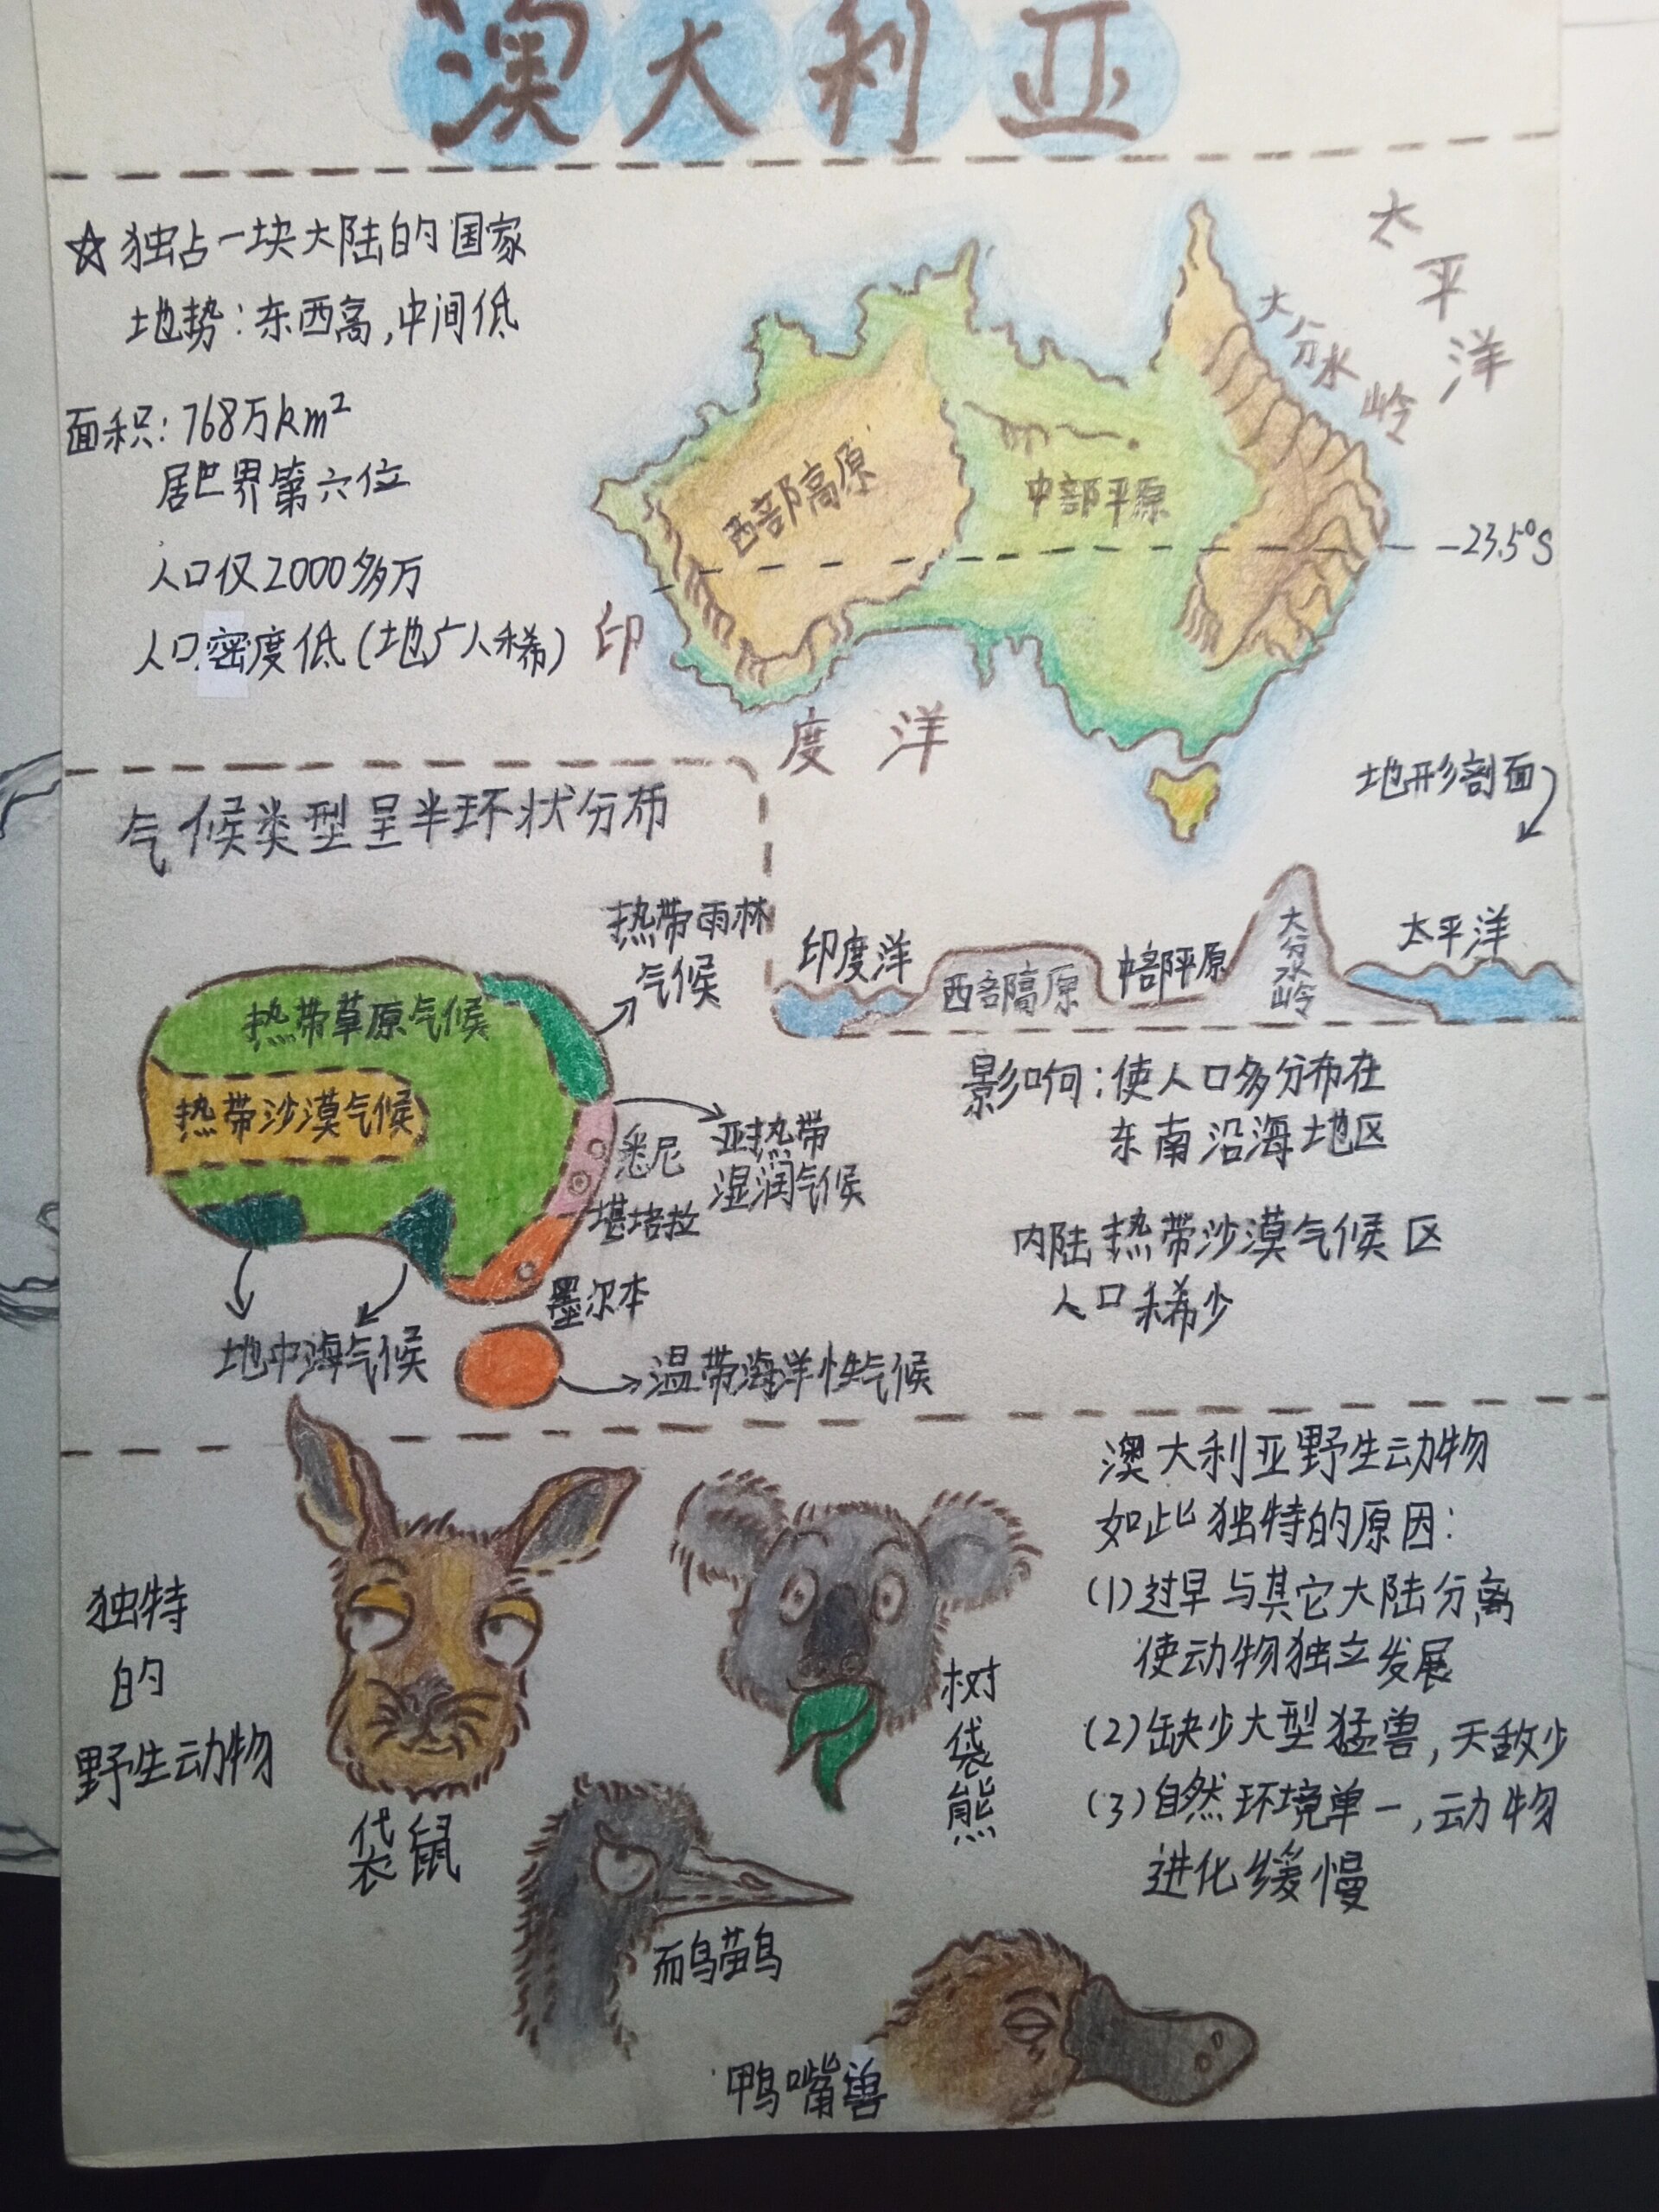 澳大利亚
☆独占一块大陆的国家
地势：东西高，中间低
面积：768万km²
居世界第六位
人口仅2000多万
人口密度低（地广人稀）
太平洋
大分水岭
西部高原
中部平原
23.5°S
印度洋
地形剖面
气候类型呈半环状分布
热带雨林
气候
热带草原气候
热带沙漠气候
亚热带
湿润气候
悉尼
堪培拉
墨尔本
地中海气候
温带海洋性气候
印度洋
西部高原
中部平原
大分水岭
太平洋
影响：使人口多分布在
东南沿海地区
内陆热带沙漠气候区
人口稀少
独特
的
野生动物
袋鼠
树袋熊
鸸鹋
鸭嘴兽
澳大利亚野生动物
如此独特的原因：
（1）过早与其它大陆分离
使动物独立发展
（2）缺少大型猛兽，天敌少
（3）自然环境单一，动物
进化缓慢